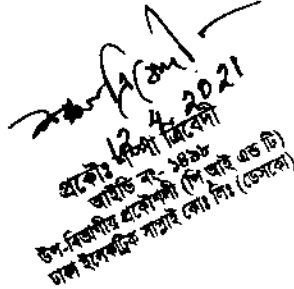 12.4.2021
প্রকৌঃ ত্রিবেদী
আইডি নং- ১৪১৮
উপ-বিভাগীয় প্রকৌশলী (পি আই এন্ড টি)
ঢাকা ইলেকট্রিক সাপ্লাই কোঃ লিঃ (ডেসকো)